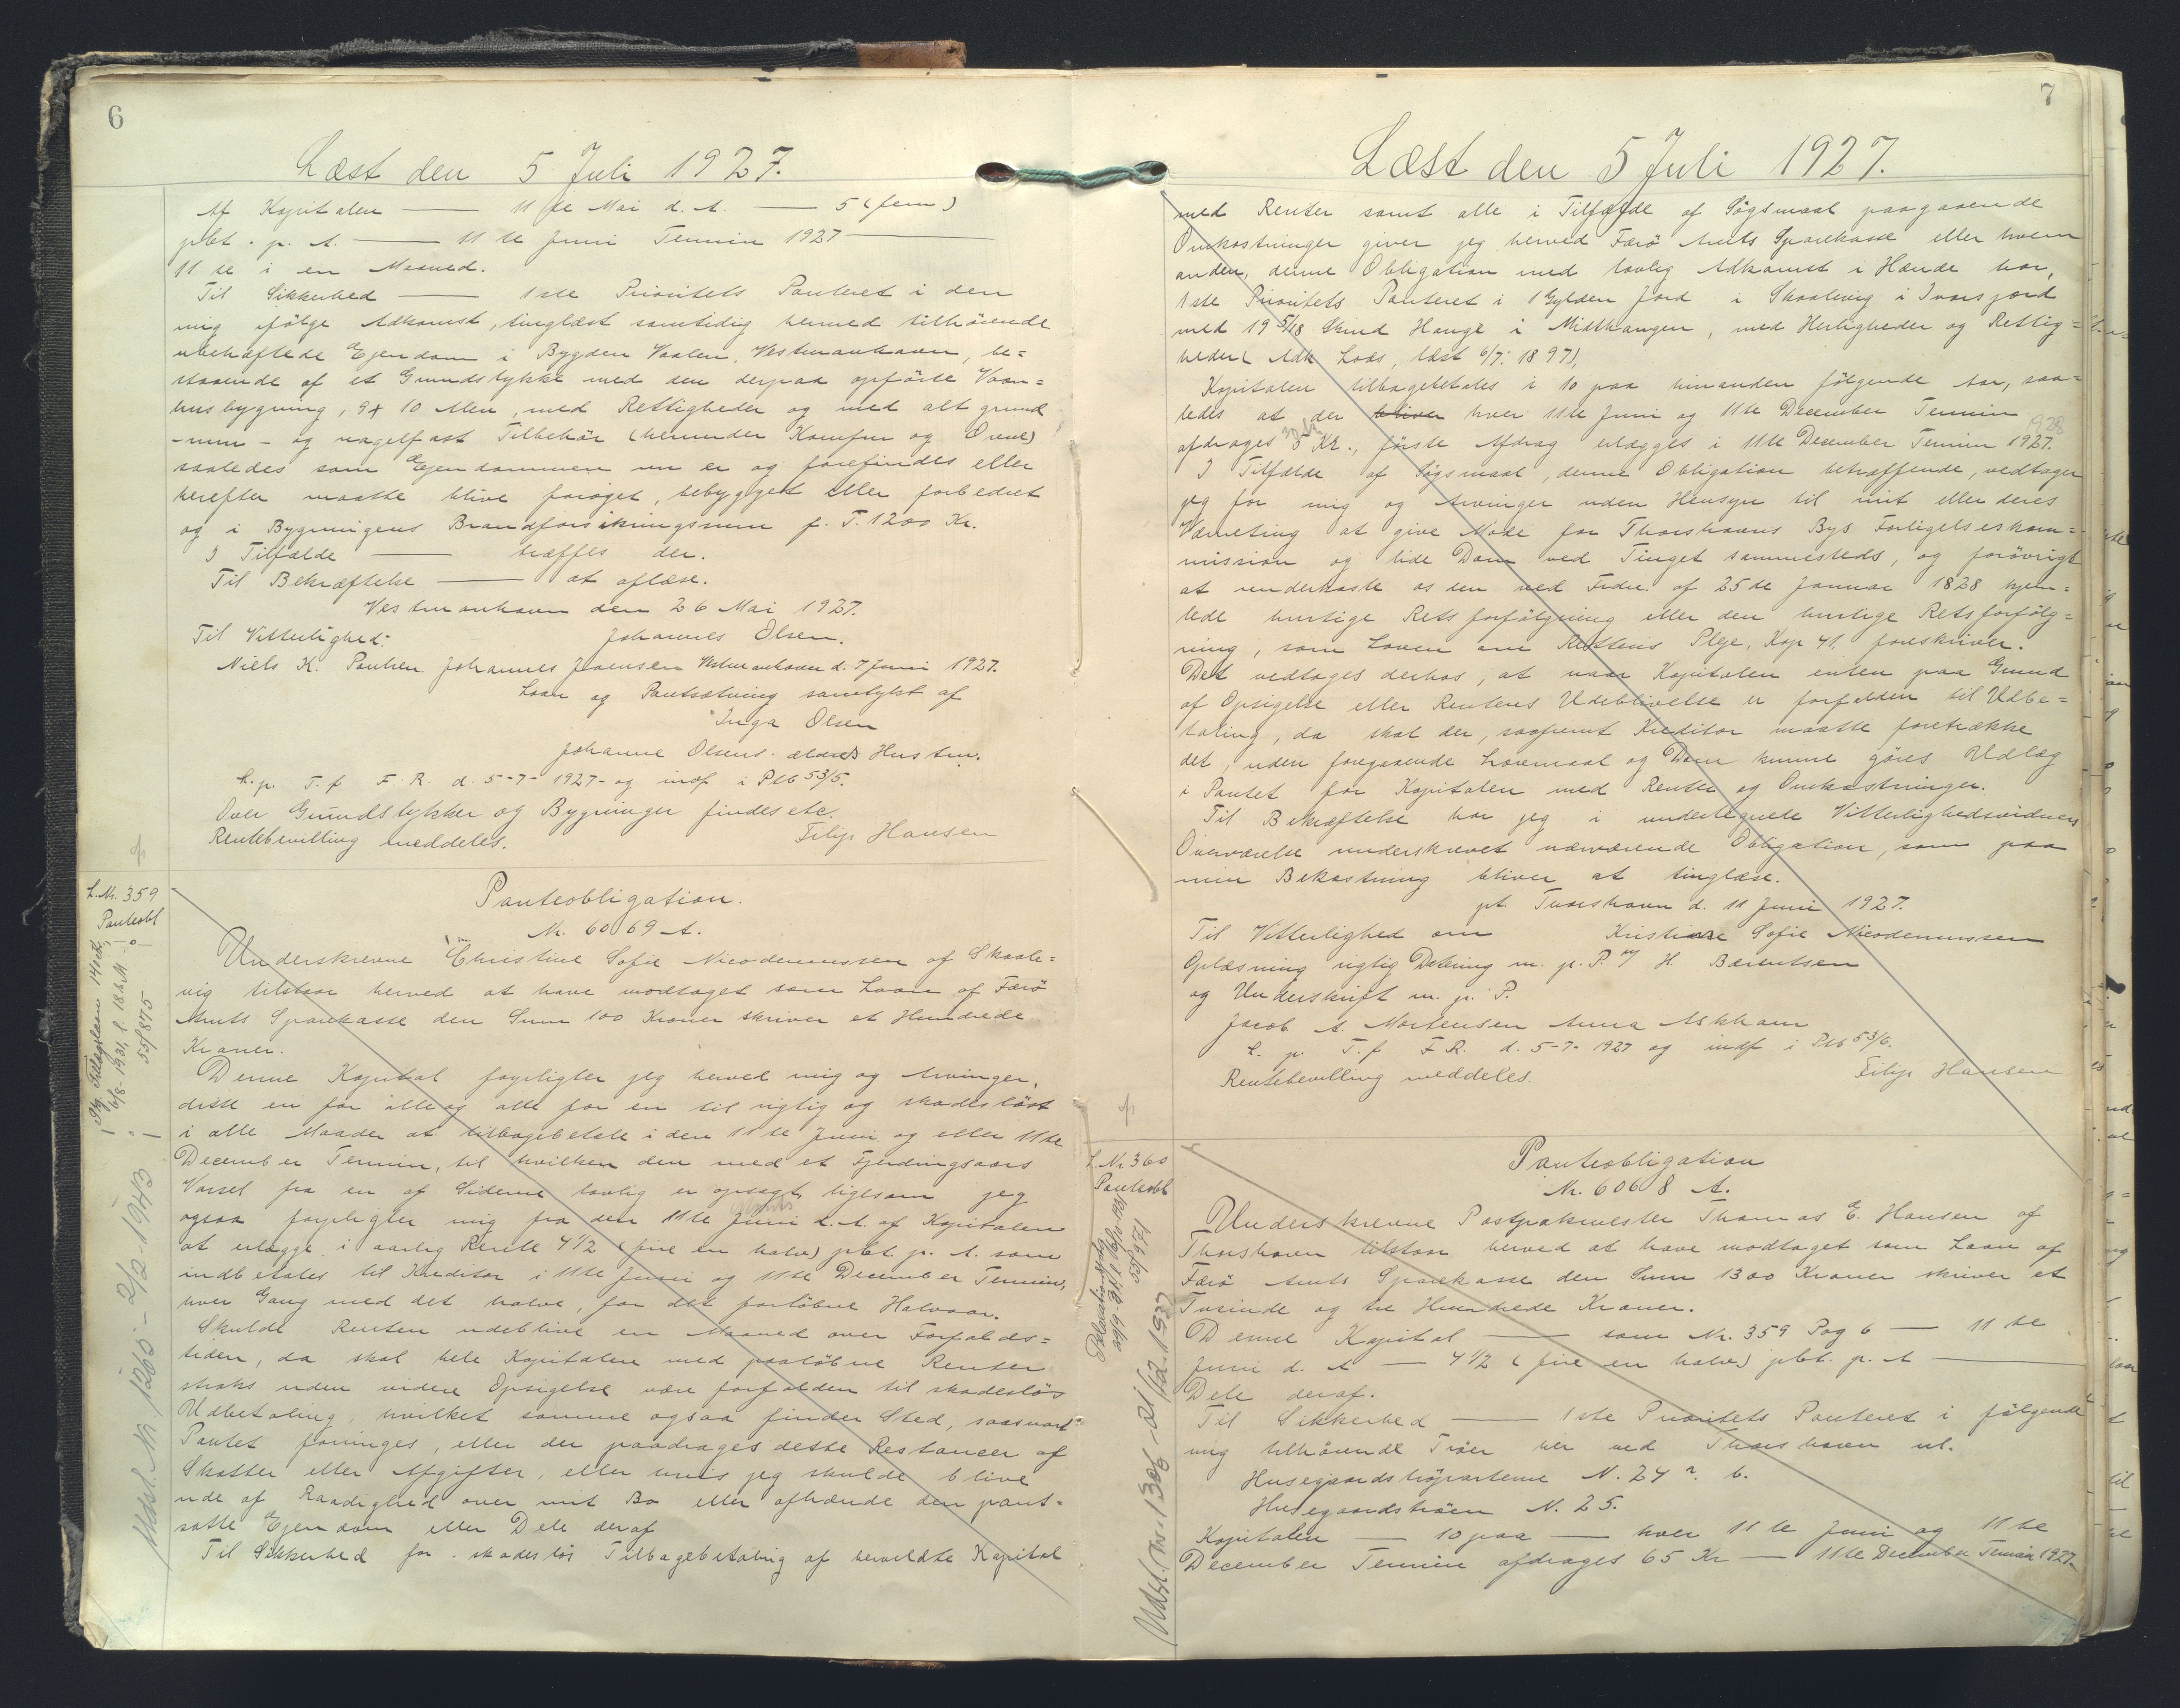 6
Læst den 5 Juli 1927.
Af Kapitalen — 11 te Mai d. A. — 5 (fem)
pCt. p. A. — 11 te Juni Termin 1927 —
11 te i en Maaned.
Til Sikkerhed — 1ste Prioritets Panteret i den
mig ifölge Adkomst, tinglæst samtidig hermed tilhörende
ubehæftede Ejendom i Bygden Vaalen, Vestmanhavn, be=
staaende af et Grundstykke med den derpaa opförte Vaan=
husbygning, 9 x 10 Alen, med Rettigheder og med alt grund
-mur- og nagelfast Tilbehör (herunder Komfur og Ovne)
saaledes som Ejendommen nu er og forefindes eller
herefter maatte blive foröget, bebygget eller forbedret
og i Bygningens Brandforsikringssum p. T. 1200 Kr.
I Tilfælde — træffes der.
Til Bekræftelse — at aflæse.
Vestmanhavn den 26 Mai 1927.
Til Vitterlighed: Johannes Olsen.
Niels K. Poulsen. Johannes Joensen Vestmanhavn d. 7 Juni 1927.
Laan og Pantsætning samtykt af
Inga Olsen
Johanne Olsens ældres Hustru.
L. p. T. f F. R. d. 5-7-1927- og indf i Ptb 53/5.
Over Grundstykker og Bygninger findes etc.
Rentebevilling meddeles. Filip Hansen
L. Nr. 359
Panteobl
Udsl. Nr. 1265 - 2/2-1943
Panteobligation.
Nr. 6069 A.
Underskrevne Christine Sofie Nicodemussen af Skaale=
vig tilstaar herved at have modtaget som Laan af Færö
Amts Sparekasse den Sum 100 Kroner skriver et Hundrede
Kroner.
Denne Kapital forpligter jeg herved mig og Arvinger,
disse en for alle og alle for en til rigtig og skadeslöst
i alle Maader at tilbagebetale i den 11 te Juni og eller 11te
December Termin, til hvilken den med et Fjerdingaars
Varsel fra en af Siderne lovlig er opsagt, ligesom jeg
ogsaa forpligter mig fra den 11te Juni d. A. af Kapitalen
at erlægge i aarlig Rente 4 1/2 (fire en halv) pCt p. A. som
indbetales til Kreditor i 11te Juni og 11te December Termin,
hver Gang med det halve, for det forløbne Halvaar.
Skulde Renten udeblive en Maaned over Forfalds=
tiden, da skal hele Kapitalen med paaløbne Renter
straks uden videre Opsigelse være forfalden til skadeslös
Udbetaling, hvilket samme ogsaa finder Sted, saasnart
Pantet foringes, eller der paadrages dette Restancer af
Skatter eller Afgifter, eller hvis jeg skulde blive
ude af Raadighed over mit Bo eller afhænde den pant=
satte Ejendom eller Dele deraf
Til Sikkerhed for skadeslös Tilbagebetaling af hermeldte Kapital
7
Læst den 5 Juli 1927.
med Renter samt alle i Tilfælde af Sögsmaal paagaaende
Omkostninger giver jeg herved Færö Amts Sparekasse eller hvem
anden, denne Obligation med lovlig Adkomst i Hænde har,
1ste Prioritets Panteret i 1 Gylden Jord i Skaalevig i Ivarsjord
med 19 5/18 Skind Hauge i Midthaugen, med Herligheder og Rettig=
heder (Adk Laas, læst 6/7. 1897),
Kapitalen tilbagebetales i 10 paa hinanden fölgende Aar, saa=
ledes at der bliver hver 11te Juni og 11te December Termin
afdrages 5 Kr., förste Afdrag erlægges i 11te December Termin 1927. 1928
I Tilfælde af Sögsmaal, denne Obligation betræffende, vedtager
jeg for mig og Arvinger uden Hensyn til mit eller deres
Værneting at give Möde for Thorshavns Bys Forligelseskom=
mission og lide Dom ved Tinget sammesteds, og forövrigt
at underkaste os den ved Frdn. af 25de Januar 1828 hjem=
lede hurtige Retsforfölgning eller den hurtige Retsforfölg=
ning, som Loven om Rettens Pleje, Kap 41. foreskriver.
Det vedtages derhos, at naar Kapitalen enten paa Grund
af Opsigelse eller Rentens Udeblivelse er forfalden til Udbe=
taling, da skal der, saafremt Kreditor maatte foretrække
det, uden foregaaende Lovmaal og Dom kunne göres Udlæg
i Pantet for Kapitalen med Renter og Omkostninger.
Til Bekræftelse har jeg i undertegnede Vitterlighedsvidners
Overværelse underskrevet nærværende Obligation, som paa
min Bekostning bliver at tinglæse.
pt. Thorshavn d. 11 Juni 1927.
Til Vitterlighed om Kristiane Sofie Nicodemussen
Oplæsning rigtig Datering m. p. P. v/ H. Bærentsen
og Underskrift m. p. P.
Jacob A. Mortensen Anna Askham
L. p. T. f F. R. d. 5-7-1927 og indf i Ptb 53/6.
Rentebevilling meddeles. Filip Hansen
L. Nr. 360
Panteobl
Panteobligation
Nr. 6068 A.
Underskrevne Postpakmester Thomas E. Hansen af
Thorshavn tilstaar herved at have modtaget som Laan af
Færö Amts Sparekasse den Sum 1300 Kroner skriver et
Tusinde og tre Hundrede Kroner.
Denne Kapital — som Nr. 359 Pag 6 — 11 te
Juni d. A — 4 1/2 (fire en halv) pCt. p. A —
Dele deraf.
Til Sikkerhed — 1ste Prioritets Panteret i fölgende
mig tilhörende Tröer her ved Thorshavn nl.
Husegaardströparterne N. 24 b.
Husegaardströen N. 25.
Kapitalen — 10 paa — hver 11 te Juni og 11 te
December Termin afdrages 65 Kr — 11te December Termin 1927